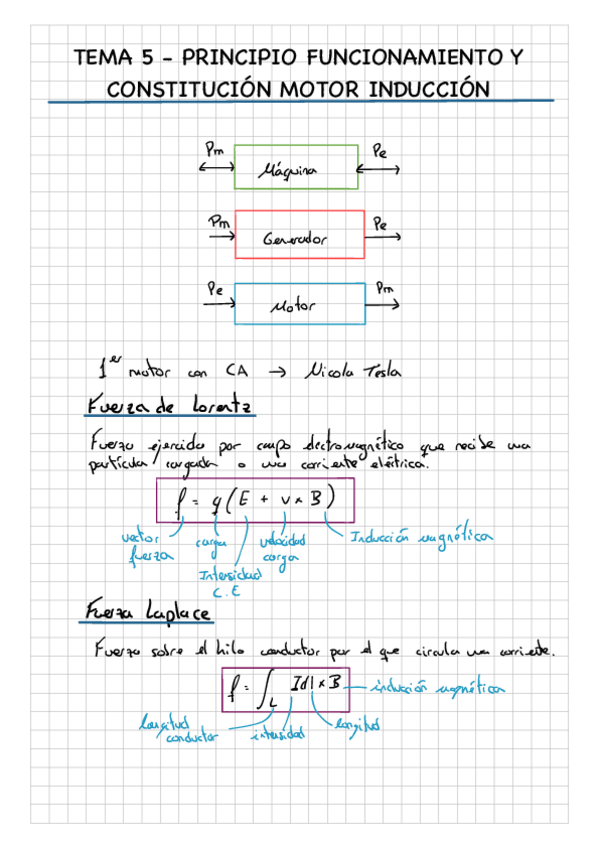 TEMA 5 - PRINCIPIO FUNCIONAMIENTO Y
CONSTITUCIÓN MOTOR INDUCCIÓN
Pm Máquina Pe
Pm Generador Pe
Pe Motor Pm
1er motor con CA → Nicola Tesla
Fuerza de Lorentz
Fuerza ejercida por campo electromagnético que recibe una
partícula cargada o una corriente eléctrica.
f = q(E + v × B)
vector fuerza
carga
Intensidad C.E
velocidad carga
Inducción magnética
Fuerza Laplace
Fuerza sobre el hilo conductor por el que circula una corriente.
f = ∫L Idl × B
inducción magnética
longitud conductor
intensidad
longitud